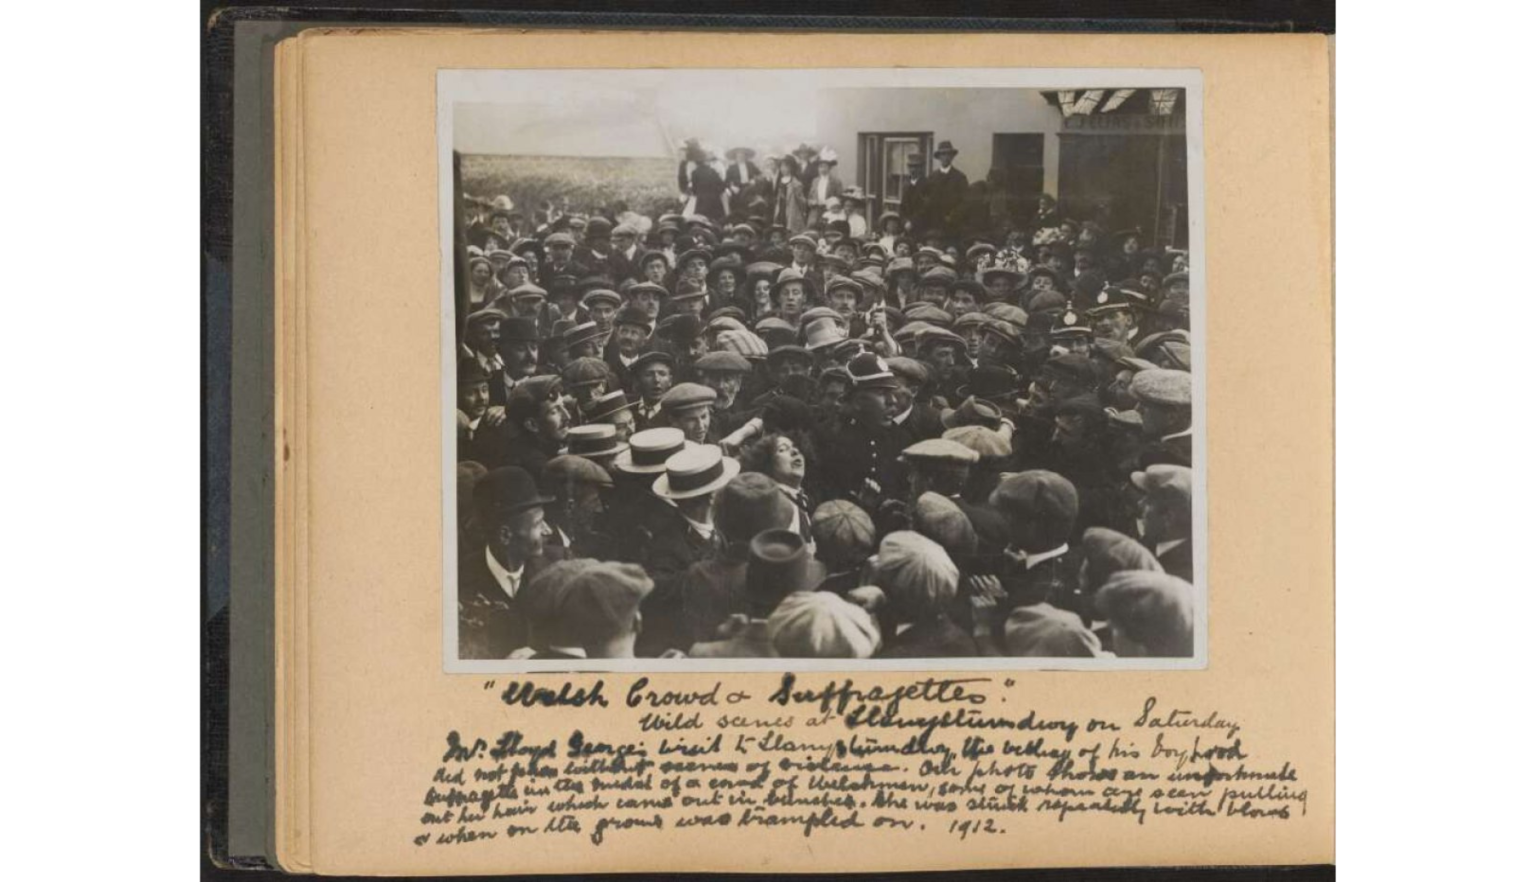 "Welsh Crowd & Suffragettes."
Wild scenes at Llanystumdwy on Saturday
Mr. Lloyd George's visit to Llanystumdwy, the village of his boyhood
did not pass without scenes of violence. Our photo shows an unfortunate
suffragette in the midst of a crowd of Welshmen, some of whom are seen pulling
out her hair which came out in bunches. She was struck repeatedly with blows
& when on the ground was trampled on. 1912.